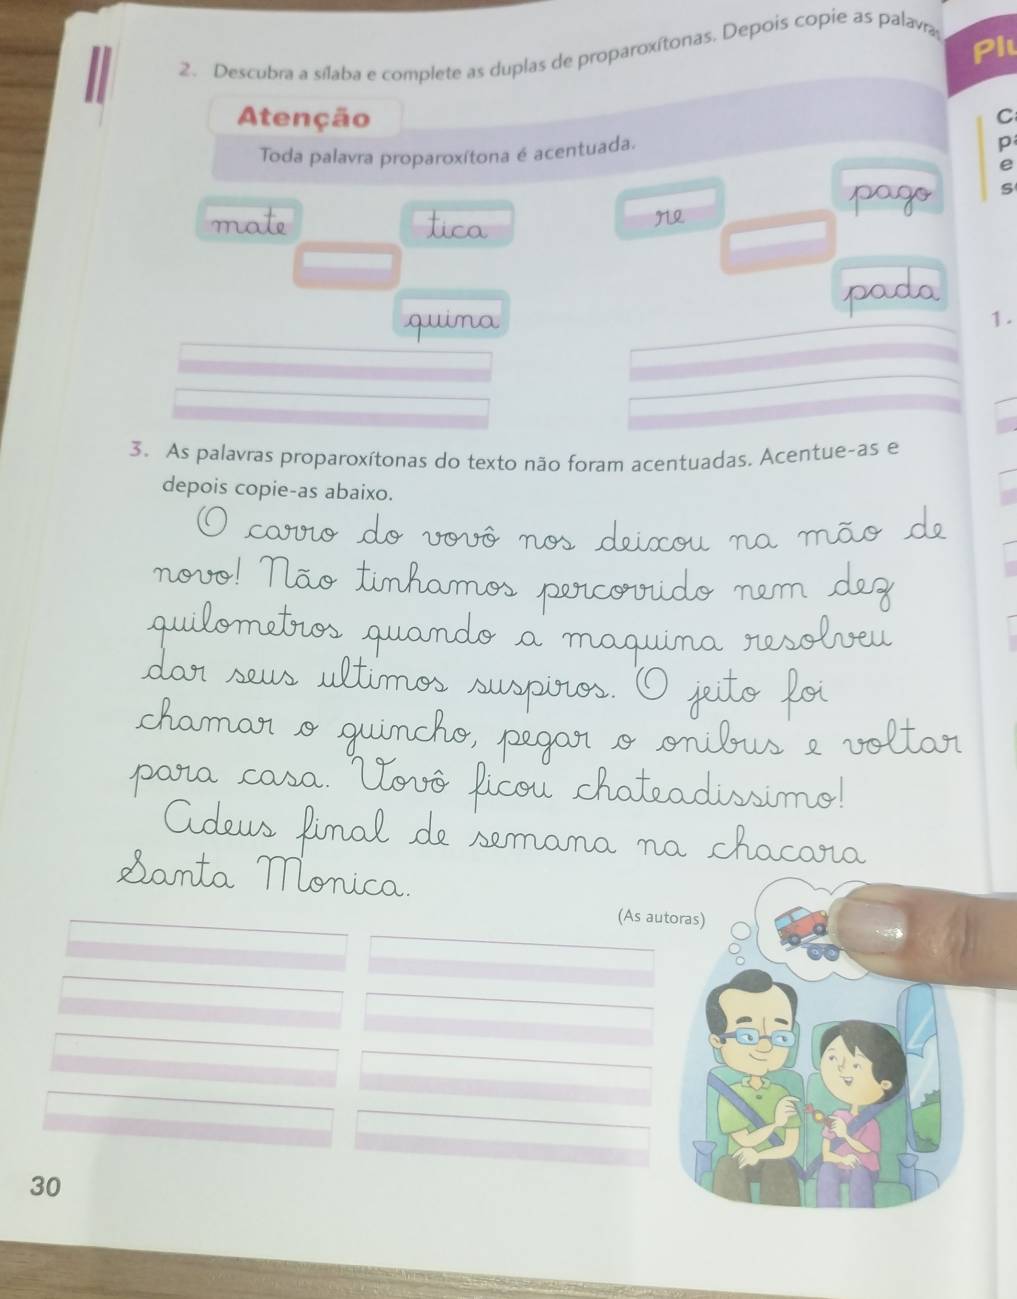 2. Descubra a sílaba e complete as duplas de proparoxítonas. Depois copie as palavras
Atenção
Toda palavra proparoxítona é acentuada.
mate
tica
quina
re
pago
pada
3. As palavras proparoxítonas do texto não foram acentuadas. Acentue-as e
depois copie-as abaixo.
O carro do vovô nos deixou na mão de
novo! Não tinhamos percorrido nem dez
quilometros quando a maquina resolveu
dar seus ultimos suspiros. O jeito foi
chamar o guincho, pegar o onibus e voltar
para casa. Vovô ficou chateadissimo!
Adeus final de semana na chacara
Santa Monica.
(As autoras)
30
1.